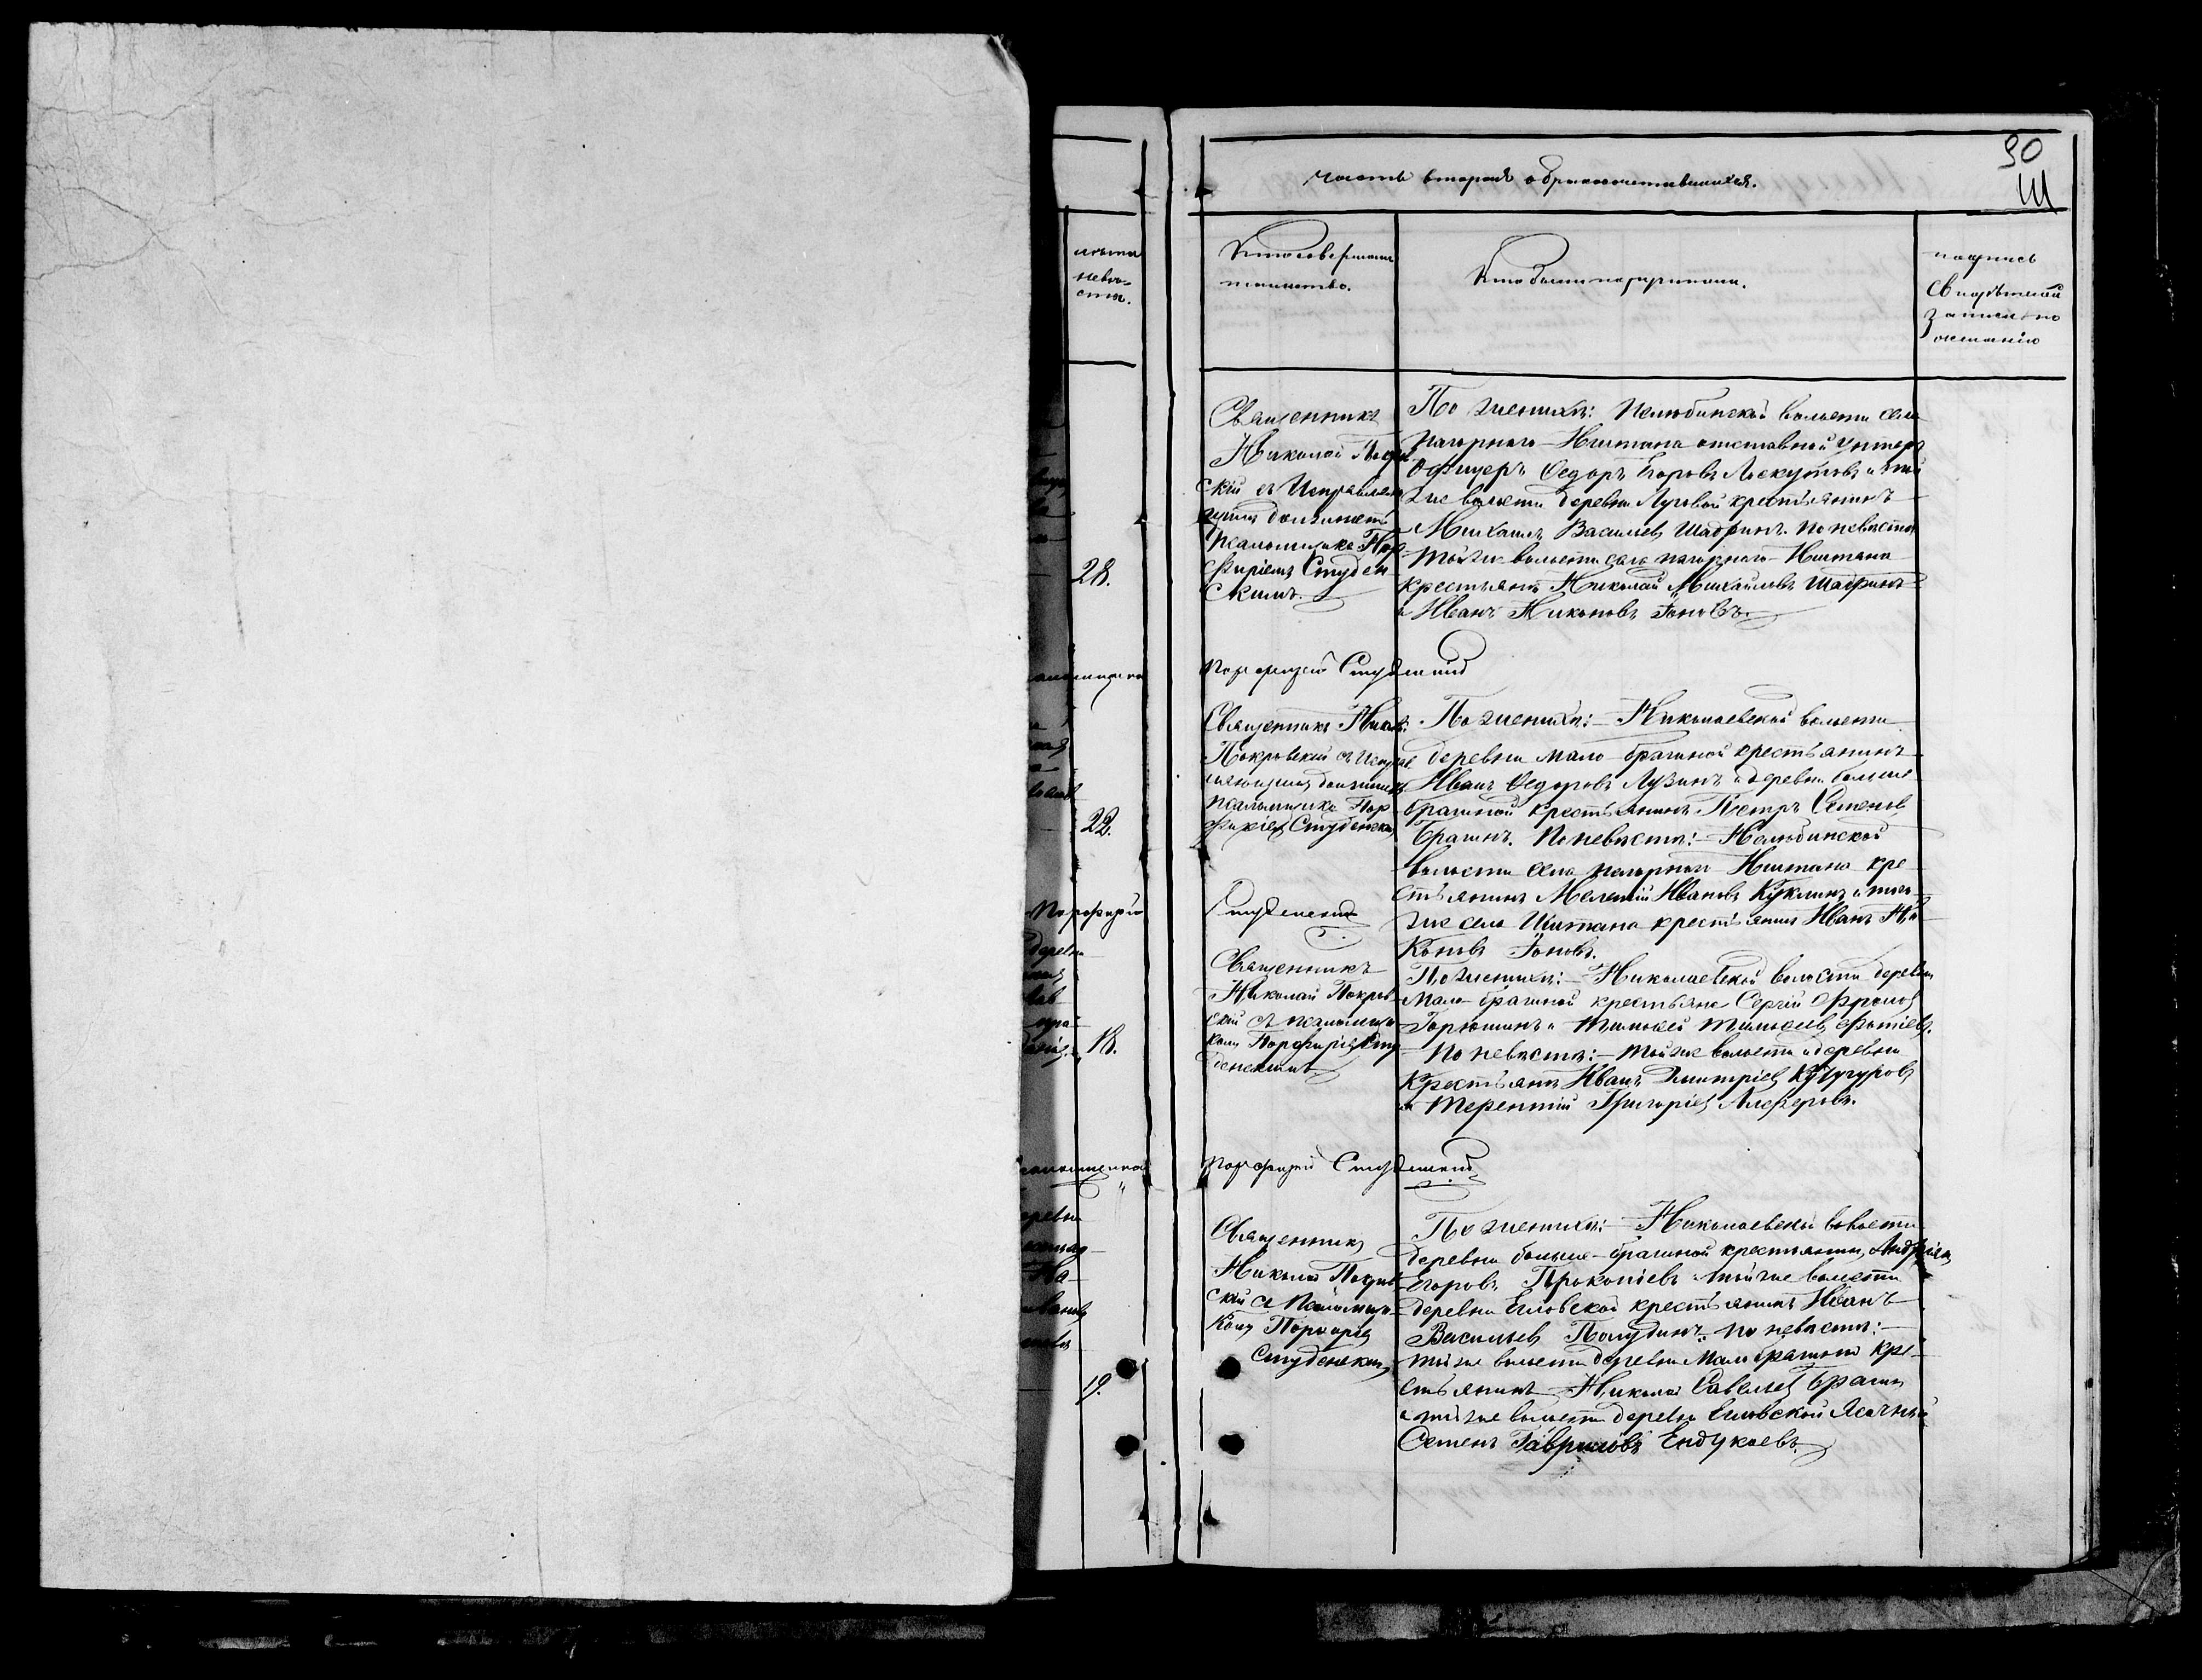 90
часть вторая о бракосочетавшихся.
лѣта
невѣ-
сты.
Кто совершалъ
таинство.
Кто были поручители.
подпись
Свидѣтелей
записи по
желанію
28.
Священникъ
Николай Покров
скій съ Исправляю
щимъ должность
псаломщика Пор
фиріемъ Студен
скимъ.
По женихѣ: Нелюбинской волости села
нагорнаго-Иштана отставной унтеръ
Офицеръ Федоръ Егоровъ Лоскутовъ и той
же волости деревни Луговой крестьянинъ
Михаилъ Васильевъ Шадринъ. По невѣстѣ
той же волости села нагорнаго-Иштана
крестьяне Николай Михайловъ Шадринъ
и Иванъ Никоновъ Іоновъ.
Порфирій Студенскій
22.
Священникъ Никол:
Покровскій съ Исправ
ляющимъ должность
псаломщика Пор
фиріемъ Студенским
По женихѣ:-Николаевской волости
деревни мало-брагиной крестьянинъ
Иванъ Федоровъ Лузинъ и деревни больше
брагиной крестьянинъ Петръ Семеновъ
Брагинъ. По невѣстѣ:-Нелюбинской
волости села нагорнаго Иштана кре
стьянинъ Мелетій Ивановъ Куклинъ и того
же села Иштана крестьянинъ Иванъ Ни
коновъ Іоновъ.
Порфирій
Студенскій
18.
Священникъ
Николай Покров
скій съ псаломщи
комъ Порфиріемъ Сту
денскимъ
По женихѣ:-Николаевской волости деревни
Мало-брагиной крестьяне Сергій Фроловъ
Горюшинъ и Тимофей Тимофеевъ Фотіевъ.
По невѣстѣ:-той же волости и деревни
Крестьяне Иванъ Дмитріевъ Кучугуровъ
и Терентій Григоріевъ Алферовъ.
Порфирій Студенскій
19.
Священникъ
Николай Покров
скій съ Псаломщи-
комъ Порфиріемъ
Студенскимъ
По женихѣ:-Николаевской волости
деревни больше-брагиной крестьянинъ Андрей
Егоровъ Прокопіевъ и той же волости
деревни Еловской крестьянинъ Иванъ
Васильевъ Полудинъ. по невѣстѣ:-
той же волости деревни Малобрагиной кре-
стьянинъ Николай Савельевъ Брагинъ
и той же волости деревни Еловской Ясачный
Семенъ Гавриловъ Ендукаевъ.